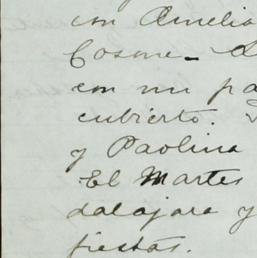 con Amelia
Cosme -
con un
cubierto.
y Paolina
El Martes
dalajara y
fiestas.